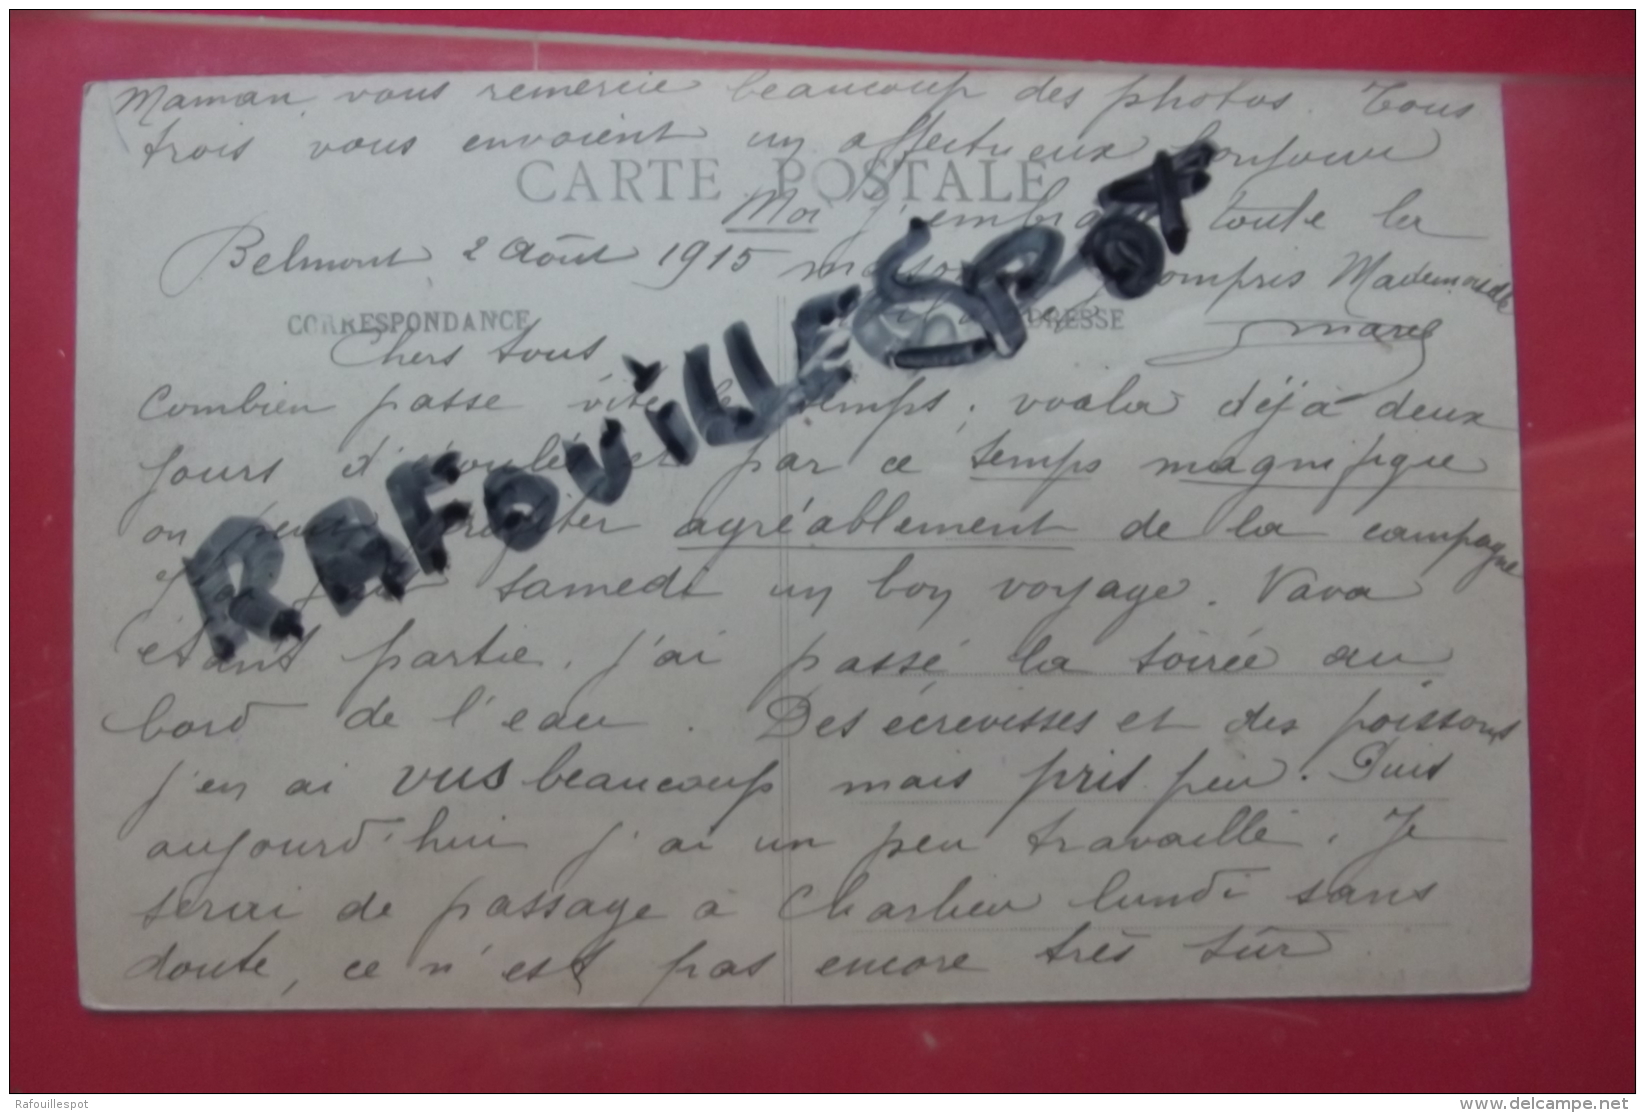 Maman vous remercie beaucoup des photos. Tous
trois vous envoient un affectueux bonjour
CARTE POSTALE
Moi j'embrasse toute la
Belmont 2 Août 1915
maison y compris Mademoiselle
CORRESPONDANCE
ADRESSE
Marcq
Chers tous
Combien passe vite le temps, voala déjà deux
jours d'écoulés et par ce temps magnifique
on peut profiter agréablement de la campagne
J'ai fait samedi un bon voyage. Vava
étant partie, j'ai passé la soirée au
bord de l'eau. Des écrevisses et des poissons
j'en ai vus beaucoup mais pris peu. Puis
aujourd'hui j'ai un peu travaillé. Je
serai de passage à Charlieu lundi sans
doute, ce n'est pas encore très sûr
RAFOUILLESPOT
Rafouillespot
delcampe.net